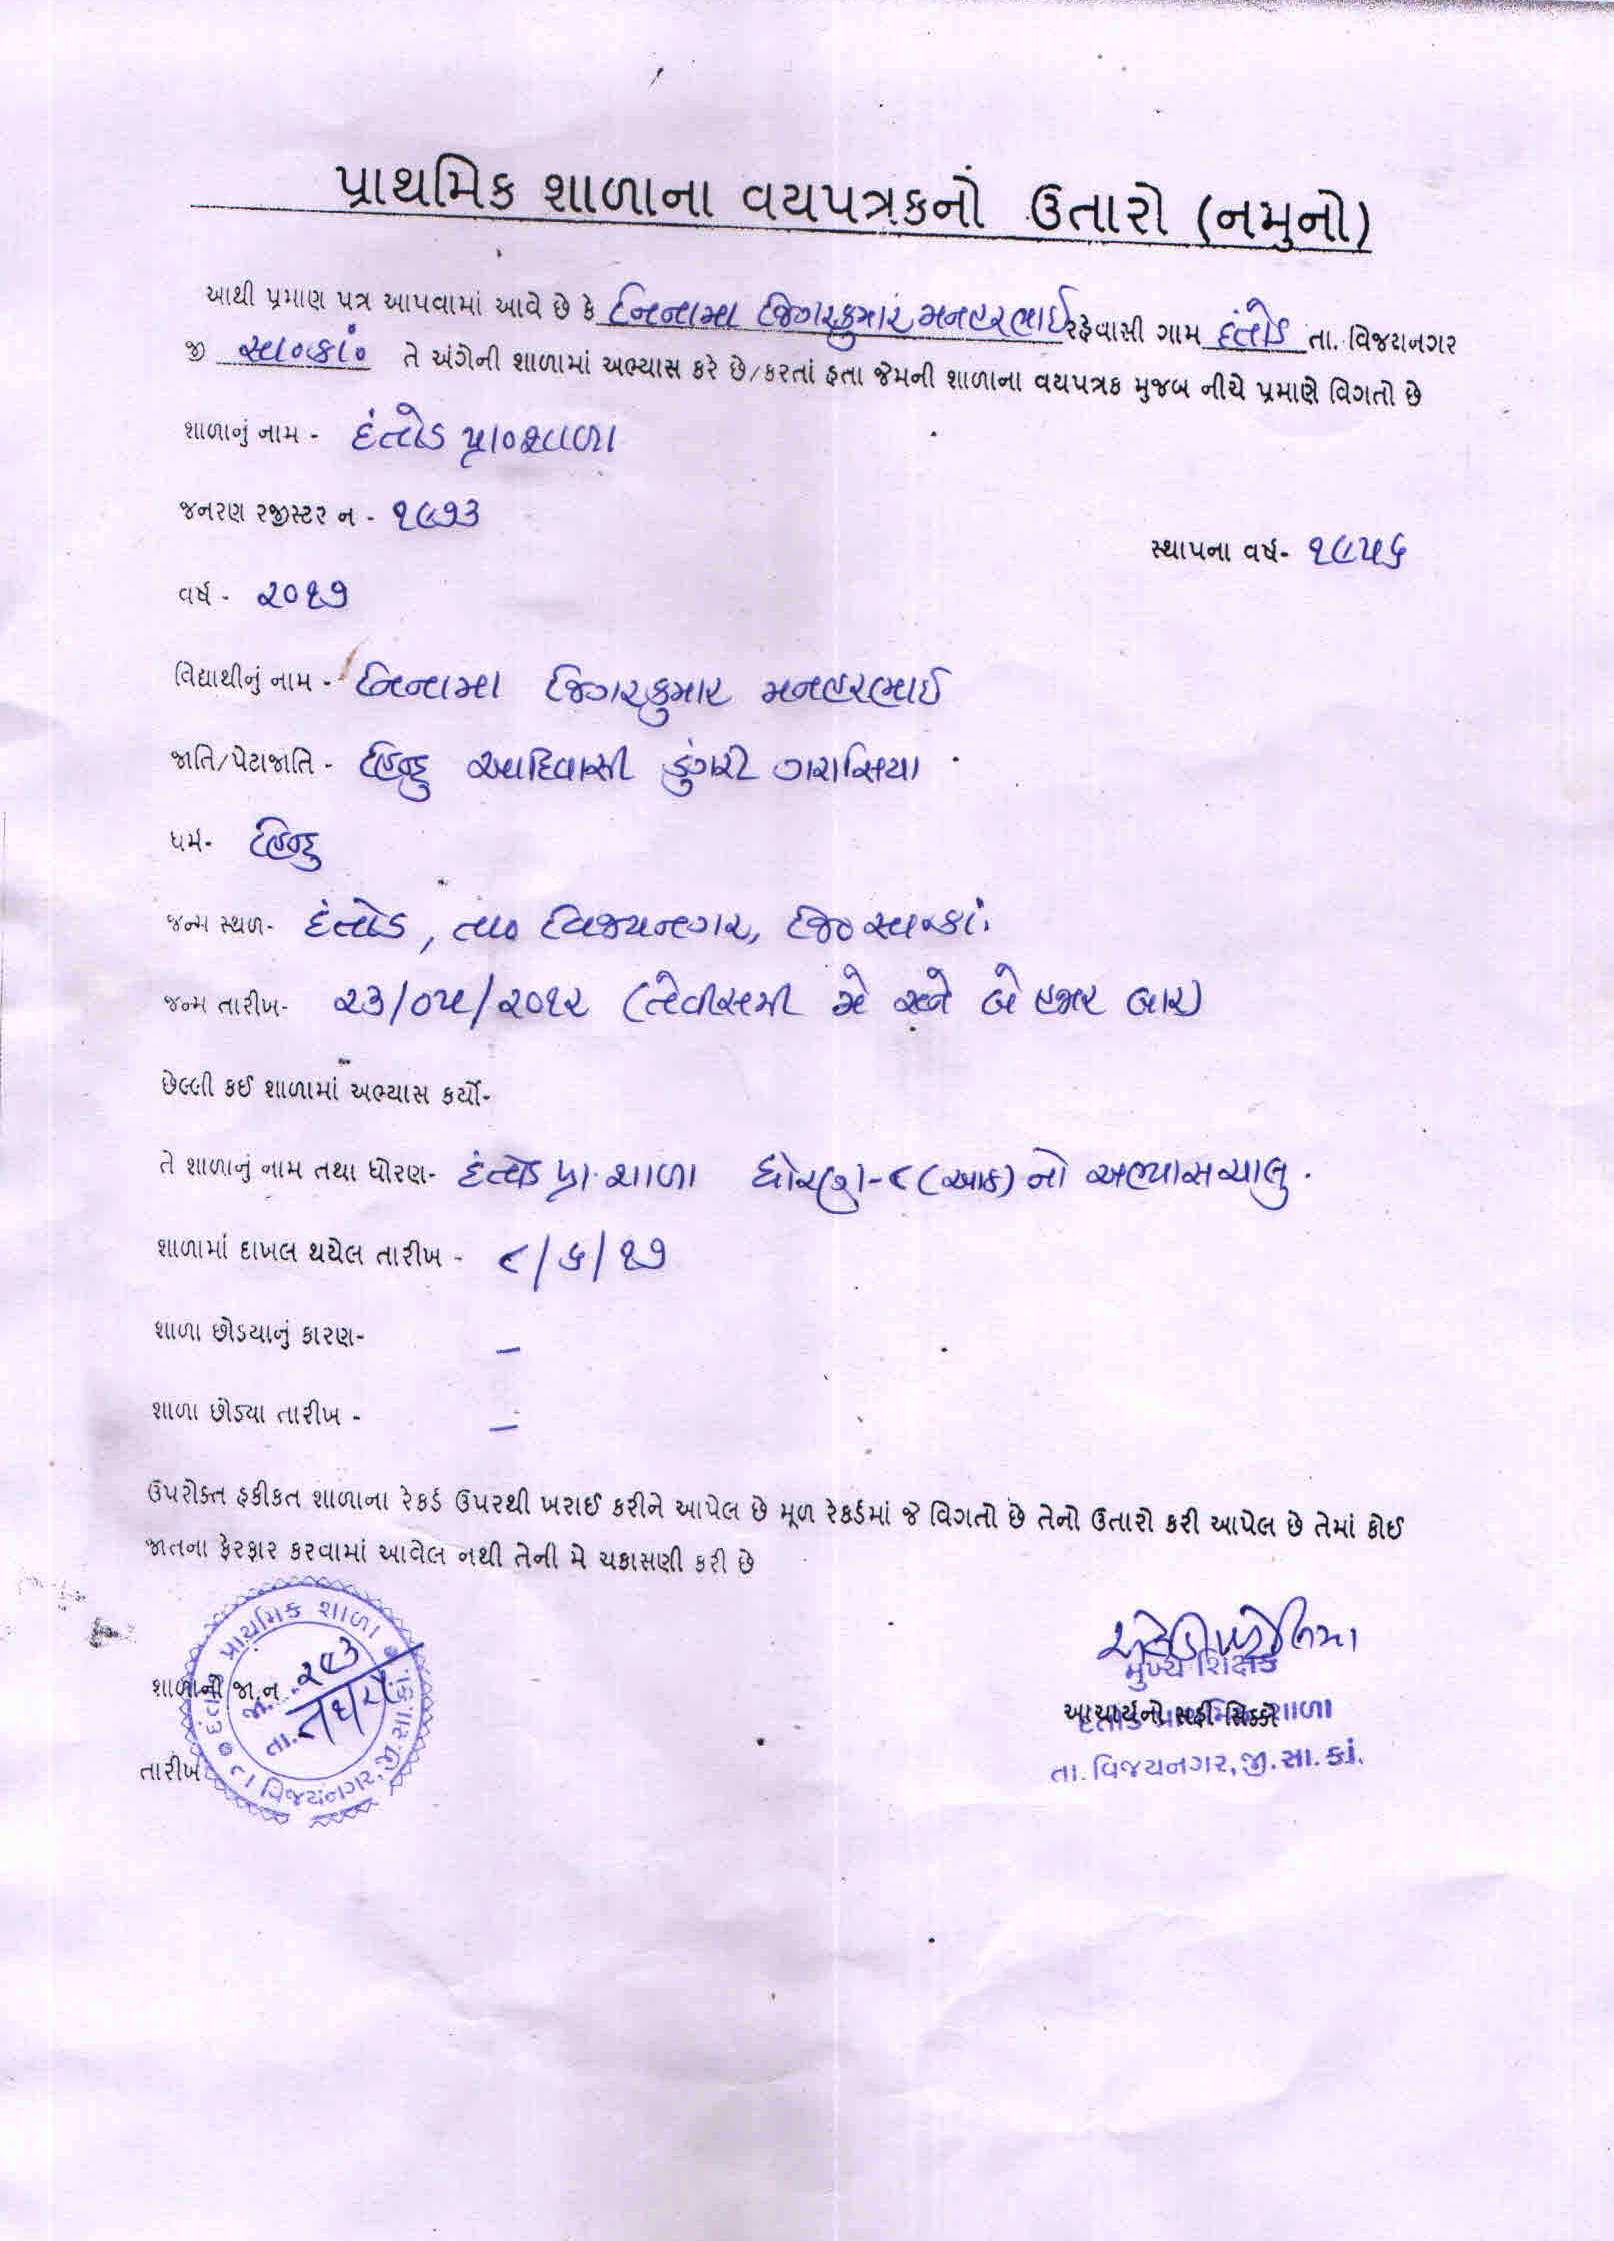 પ્રાથમિક શાળાના વયપત્રકનો ઉતારો (નમુનો)
આથી પ્રમાણ પત્ર આપવામાં આવે છે કે નિનામા જિગરકુમાર મનહરભાઈ રહેવાસી ગામ દંતોડ તા. વિજયનગર
જી સા૦કાં૦ તે અંગેની શાળામાં અભ્યાસ કરે છે/કરતાં હતા જેમની શાળાના વયપત્રક મુજબ નીચે પ્રમાણે વિગતો છે
શાળાનું નામ - દંતોડ પ્રા૦શાળા
જનરણ રજીસ્ટર ન - ૧૯૭૩
સ્થાપના વર્ષ- ૧૯૫૬
વર્ષ - ૨૦૧૭
વિદ્યાથીનું નામ - નિનામા જિગરકુમાર મનહરભાઈ
જાતિ/પેટાજાતિ - હિન્દુ આદિવાસી ડુંગરી ગરાસિયા
ધર્મ- હિન્દુ
જન્મ સ્થળ- દંતોડ, તા૦ વિજયનગર, જિ૦ સા૦કાં.
જન્મ તારીખ- ૨૩/૦૫/૨૦૧૨ (તેવીસમી મે સને બે હજાર બાર)
છેલ્લી કઈ શાળામાં અભ્યાસ કર્યો-
તે શાળાનું નામ તથા ધોરણ- દંતોડ પ્રા. શાળા ધોરણ-૮ (આઠ) નો અભ્યાસ ચાલુ.
શાળામાં દાખલ થયેલ તારીખ - ૮/૬/૧૭
શાળા છોડયાનું કારણ- –
શાળા છોડયા તારીખ - –
ઉપરોક્ત હકીકત શાળાના રેકર્ડ ઉપરથી ખરાઈ કરીને આપેલ છે મૂળ રેકર્ડમાં જે વિગતો છે તેનો ઉતારો કરી આપેલ છે તેમાં કોઈ
જાતના ફેરફાર કરવામાં આવેલ નથી તેની મે ચકાસણી કરી છે
પ્રાથમિક શાળા
શાળાની જા.ન
જા. ૨૯૩
તા.
તારીખ
તા વિજયનગર,
મુખ્ય શિક્ષક
આચાર્યનો સહી સિક્કો
શાળા
તા. વિજયનગર, જી. સા. કાં.